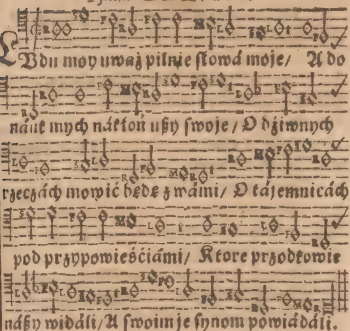 LUdu moy uważ pilnie słowá moje / A do
náuk mych nákłoń ußy swoje / O dźiwnych
rzeczách mowić będę z wámi / O tájemnicách
pod przypowieśćiámi / Ktore przodkowie
náßy widáli / A swoim je synom powiádáli.